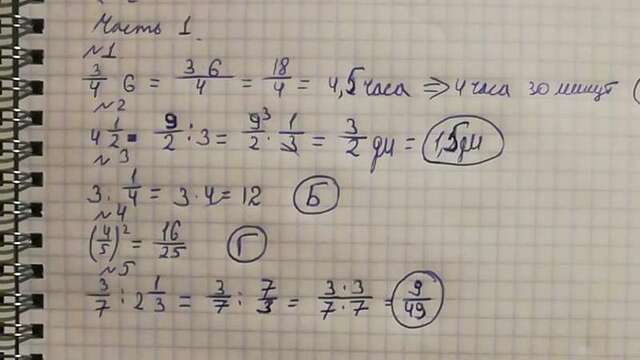 Часть 1.
№1
3/4 6 = 3 6/4 = 18/4 = 4,5 часа ⇒ 4 часа 30 минут (
№2
4 1/2 = 9/2 : 3 = 9³/2 · 1/3 = 3/2 дм = 1,5 дм
№3
3 · 1/4 = 3 · 4 = 12 Б
№4
(4/5)² = 16/25 Г
№5
3/7 : 2 1/3 = 3/7 : 7/3 = 3·3/7·7 = 9/49